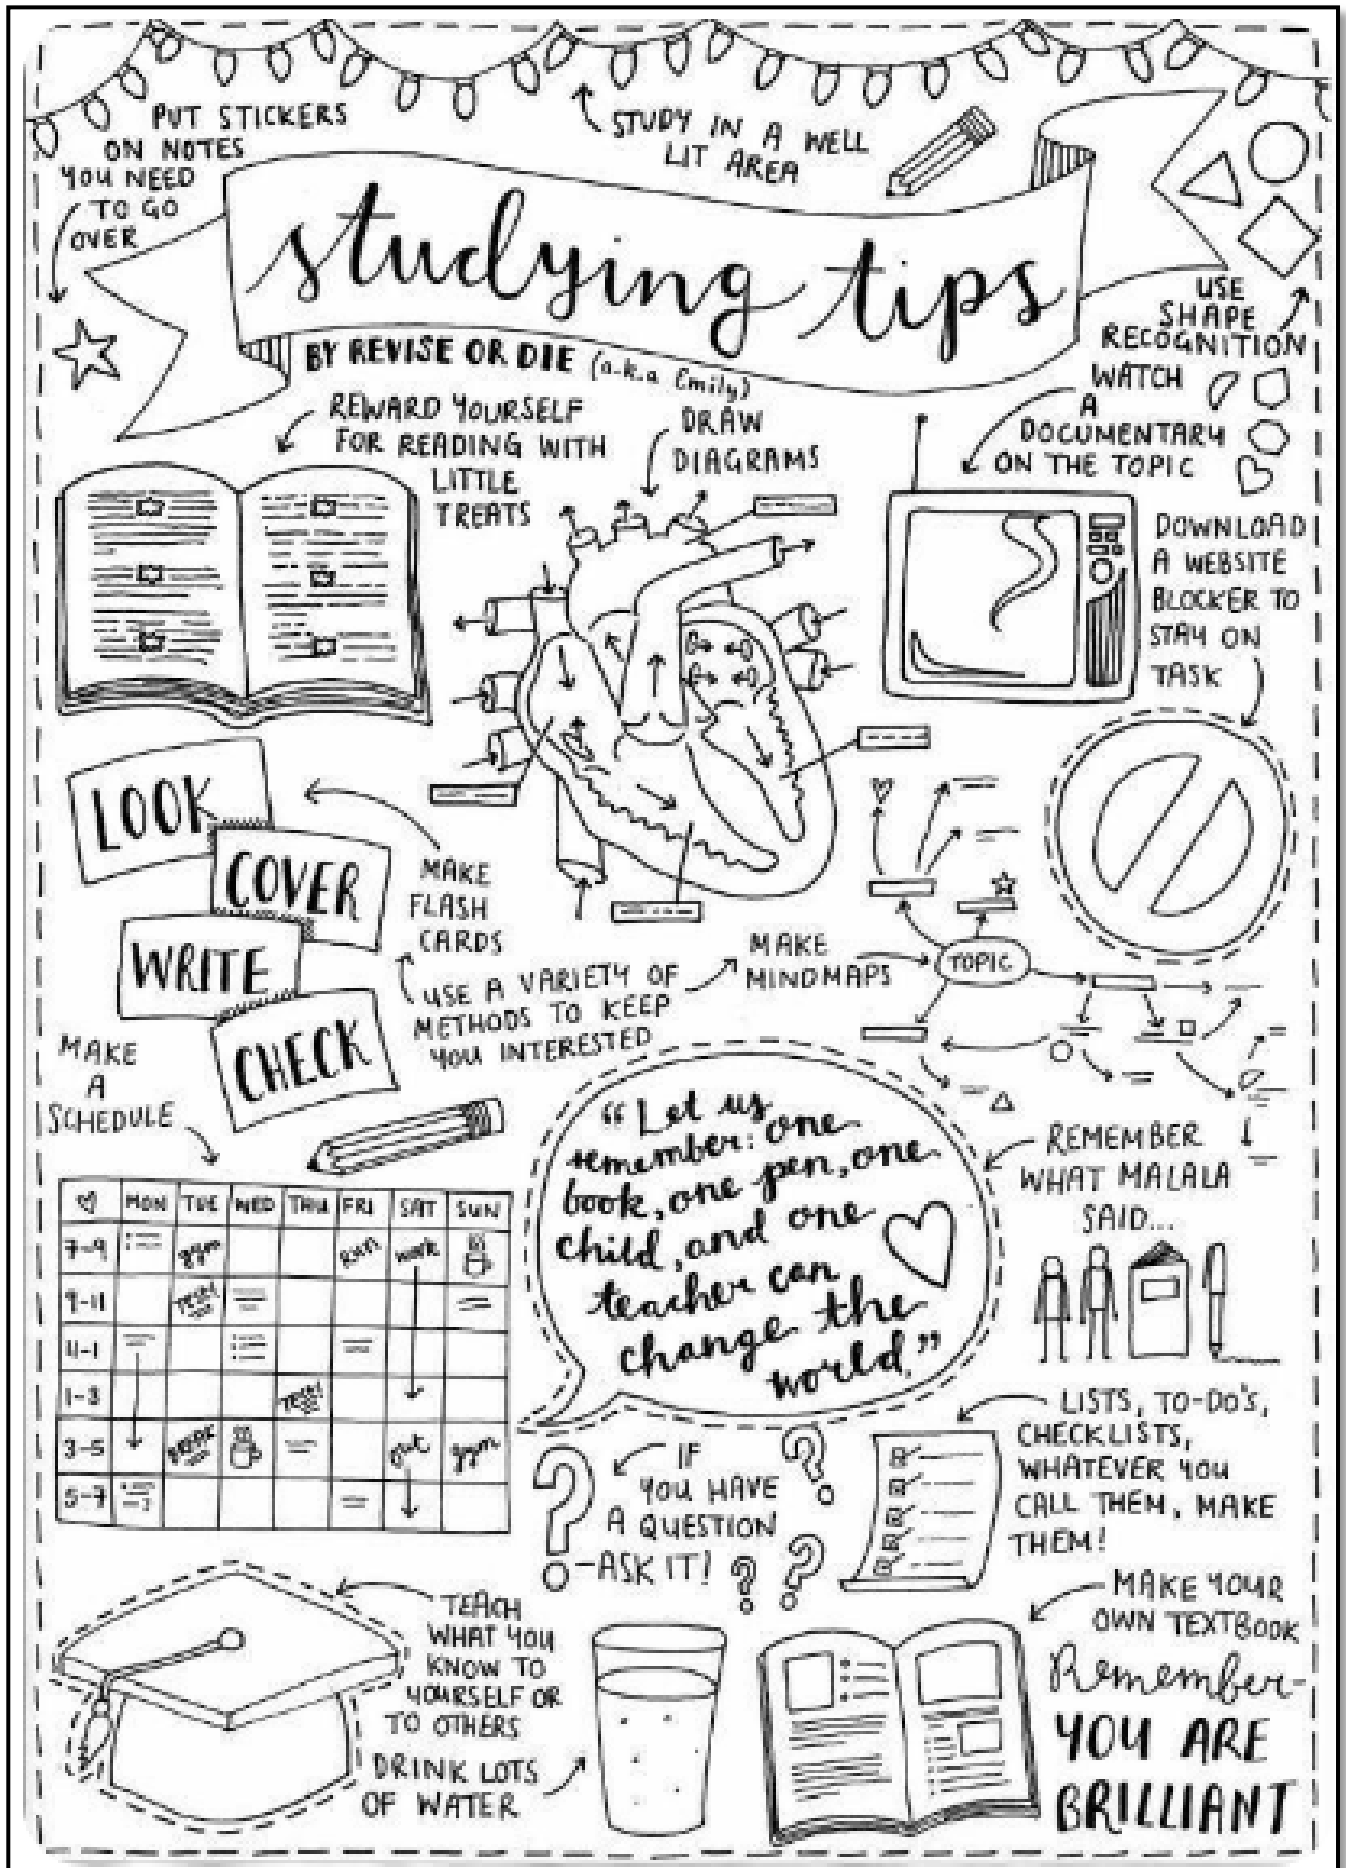 PUT STICKERS
ON NOTES
YOU NEED
TO GO
OVER
STUDY IN A WELL
LIT AREA
studying tips
BY REVISE OR DIE (a.k.a Emily)
USE
SHAPE
RECOGNITION
REWARD YOURSELF
FOR READING WITH
LITTLE
TREATS
DRAW
DIAGRAMS
WATCH
A
DOCUMENTARY
ON THE TOPIC
DOWNLOAD
A WEBSITE
BLOCKER TO
STAY ON
TASK
LOOK
COVER
WRITE
CHECK
MAKE
FLASH
CARDS
USE A VARIETY OF
METHODS TO KEEP
YOU INTERESTED
MAKE
MINDMAPS
TOPIC
MAKE
A
SCHEDULE
MON TUE WED THU FRI SAT SUN
7-9 gym run work
9-11
11-1
1-3
3-5 BREAK out gym
5-7
"Let us
remember: one
book, one pen, one
child, and one
teacher can
change the
world."
REMEMBER
WHAT MALALA
SAID...
IF
YOU HAVE
A QUESTION
-ASK IT!
LISTS, TO-DO'S,
CHECKLISTS,
WHATEVER YOU
CALL THEM, MAKE
THEM!
TEACH
WHAT YOU
KNOW TO
YOURSELF OR
TO OTHERS
DRINK LOTS
OF WATER
MAKE YOUR
OWN TEXTBOOK
Remember-
YOU ARE
BRILLIANT